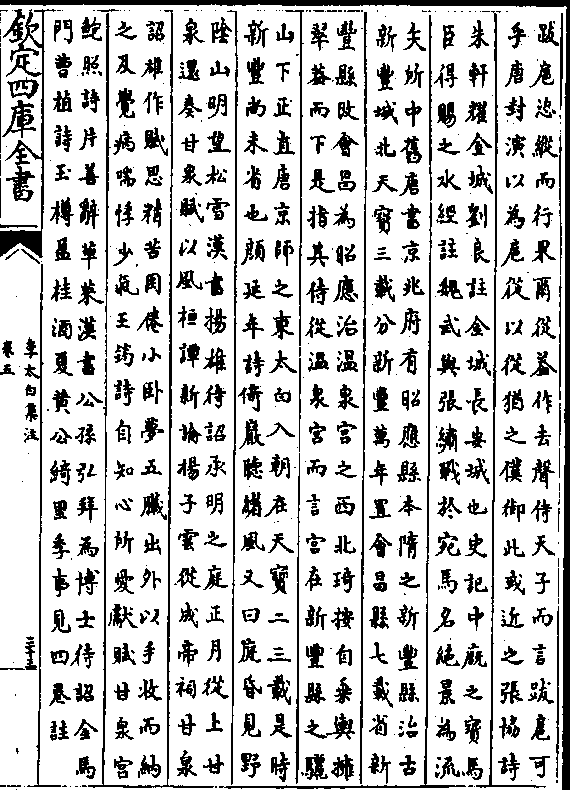 跋扈恣縱而行果爾從蓋作去聲侍天子而言跋扈可
乎唐封演以為扈從以從猶之僕御此或近之張協詩
朱軒耀金城劉良註金城長安城也史記中廐之寳馬
臣得賜之水經註魏武與張繡戰於宛馬名絕景為流
矢所中舊唐書京兆府有昭應縣本隋之新豐縣治古
新豐城北天寳三載分新豐萬年置會昌縣七載省新
豐縣改會昌為昭應治温泉宫之西北琦按自乗輿擁
翠葢而下是指其侍從温泉宫而言宫在新豐縣之驪
山下正直唐京師之東太白入朝在天寳二三載是時
新豐尚未省也顔延年詩倚巖聴緒風又曰庭昏見野
陰山明望松雪漢書揚雄待詔承明之庭正月從上甘
泉還奏甘泉賦以風桓譚新論揚子雲從成帝祠甘泉
詔雄作賦思精苦困倦小卧夢五臟出外以手收而納
之及覺病喘悸少氣王筠詩自知心所愛獻賦甘泉宫
鮑照詩片善辭草萊漢書公孫弘拜為博士待詔金馬
門曹植詩玉樽盈桂酒夏黄公綺里季事見四卷註
欽定四庫全書
李太白集注
卷五
三十三